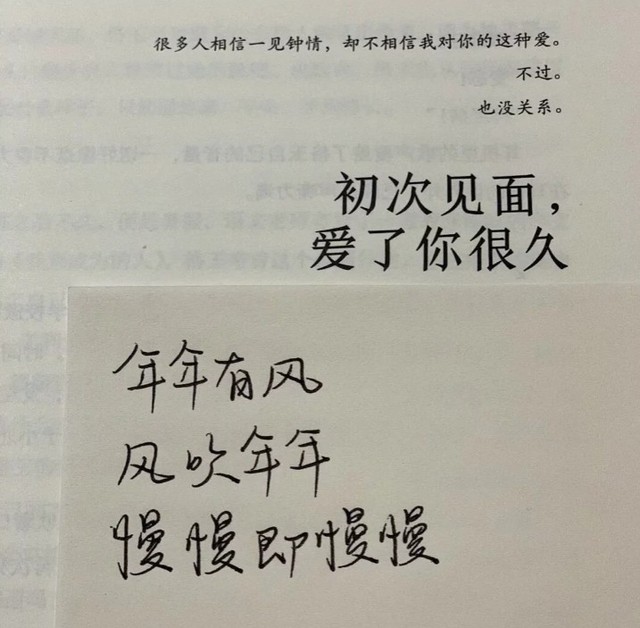 很多人相信一见钟情，却不相信我对你的这种爱。
不过。
也没关系。
初次见面，
爱了你很久
年年有风
风吹年年
慢慢即慢慢